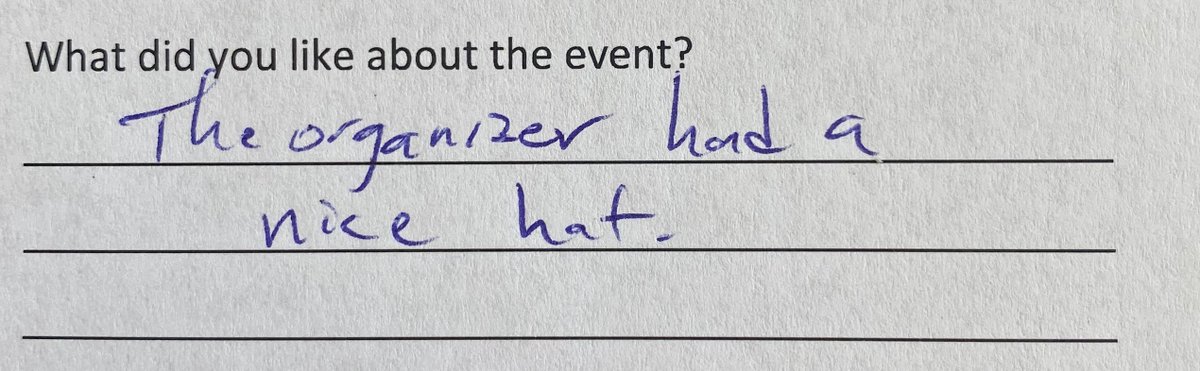 What did you like about the event?
The organizer had a
nice hat.